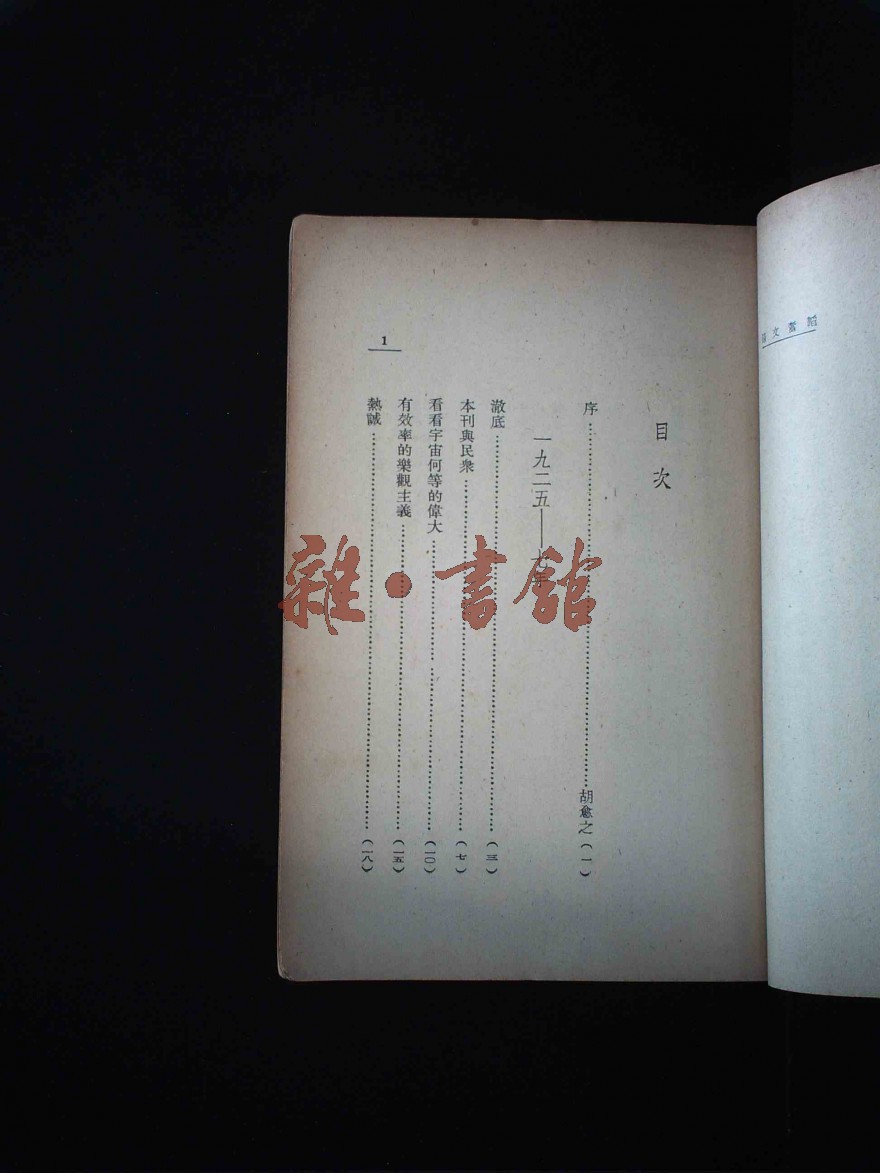 目次
序……胡愈之（一）
一九二五——七年
澈底……（三）
本刊與民衆……（七）
看看宇宙何等的偉大……（一〇）
有效率的樂觀主義……（一五）
熱誠……（一八）
1
韜奮文
雜·書館